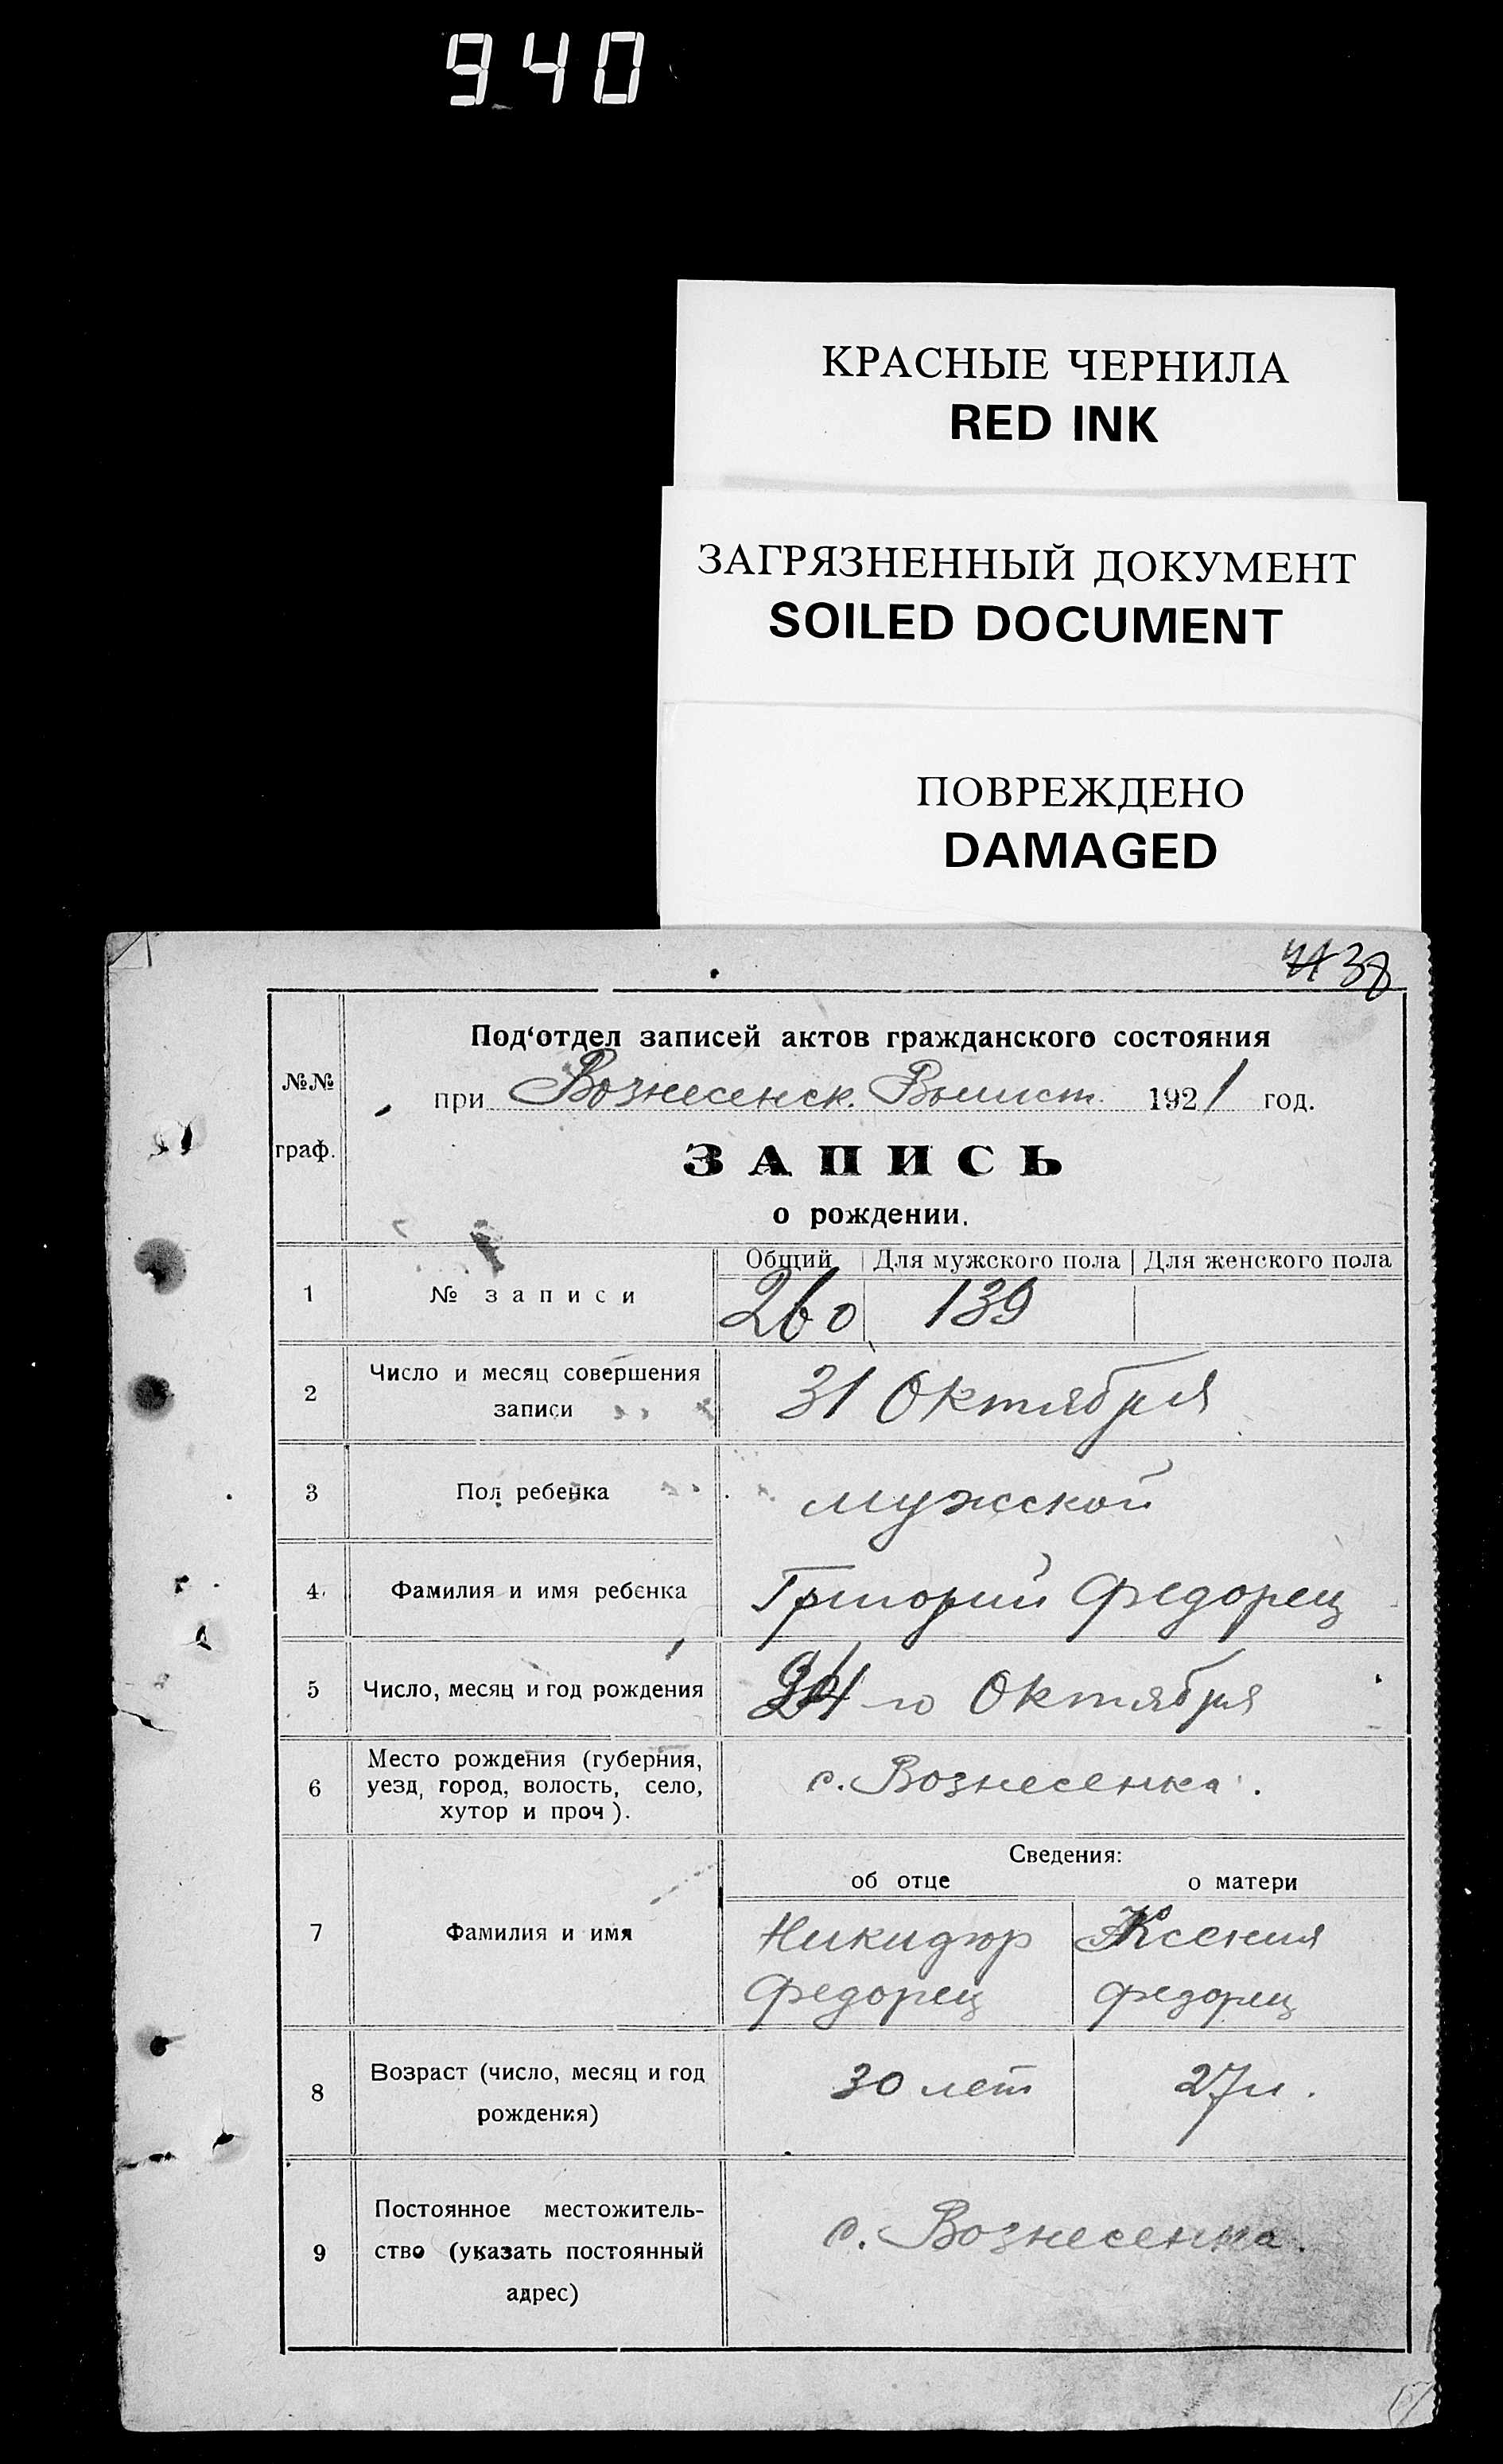 940
КРАСНЫЕ ЧЕРНИЛА
RED INK
ЗАГРЯЗНЕННЫЙ ДОКУМЕНТ
SOILED DOCUMENT
ПОВРЕЖДЕНО
DAMAGED
38
Под‘отдел записей актов гражданского состояния
№№ граф.
при Вознесенск. 1921 год.
ЗАПИСЬ
о рождении.
Общий Для мужского пола Для женского пола
1 № записи 260 139
2 Число и месяц совершения
записи 31 Октября
3 Пол ребенка мужской
4 Фамилия и имя ребенка Григорий Федорец
5 Число, месяц и год рождения 24-го Октября
6 Место рождения (губерния,
уезд, город, волость, село,
хутор и проч). с. Вознесенка.
Сведения:
об отце о матери
7 Фамилия и имя Никифор Ксения
Федорец Федорец
8 Возраст (число, месяц и год
рождения) 30 лет 27 л.
9 Постоянное местожитель-
ство (указать постоянный
адрес) с. Вознесенка.